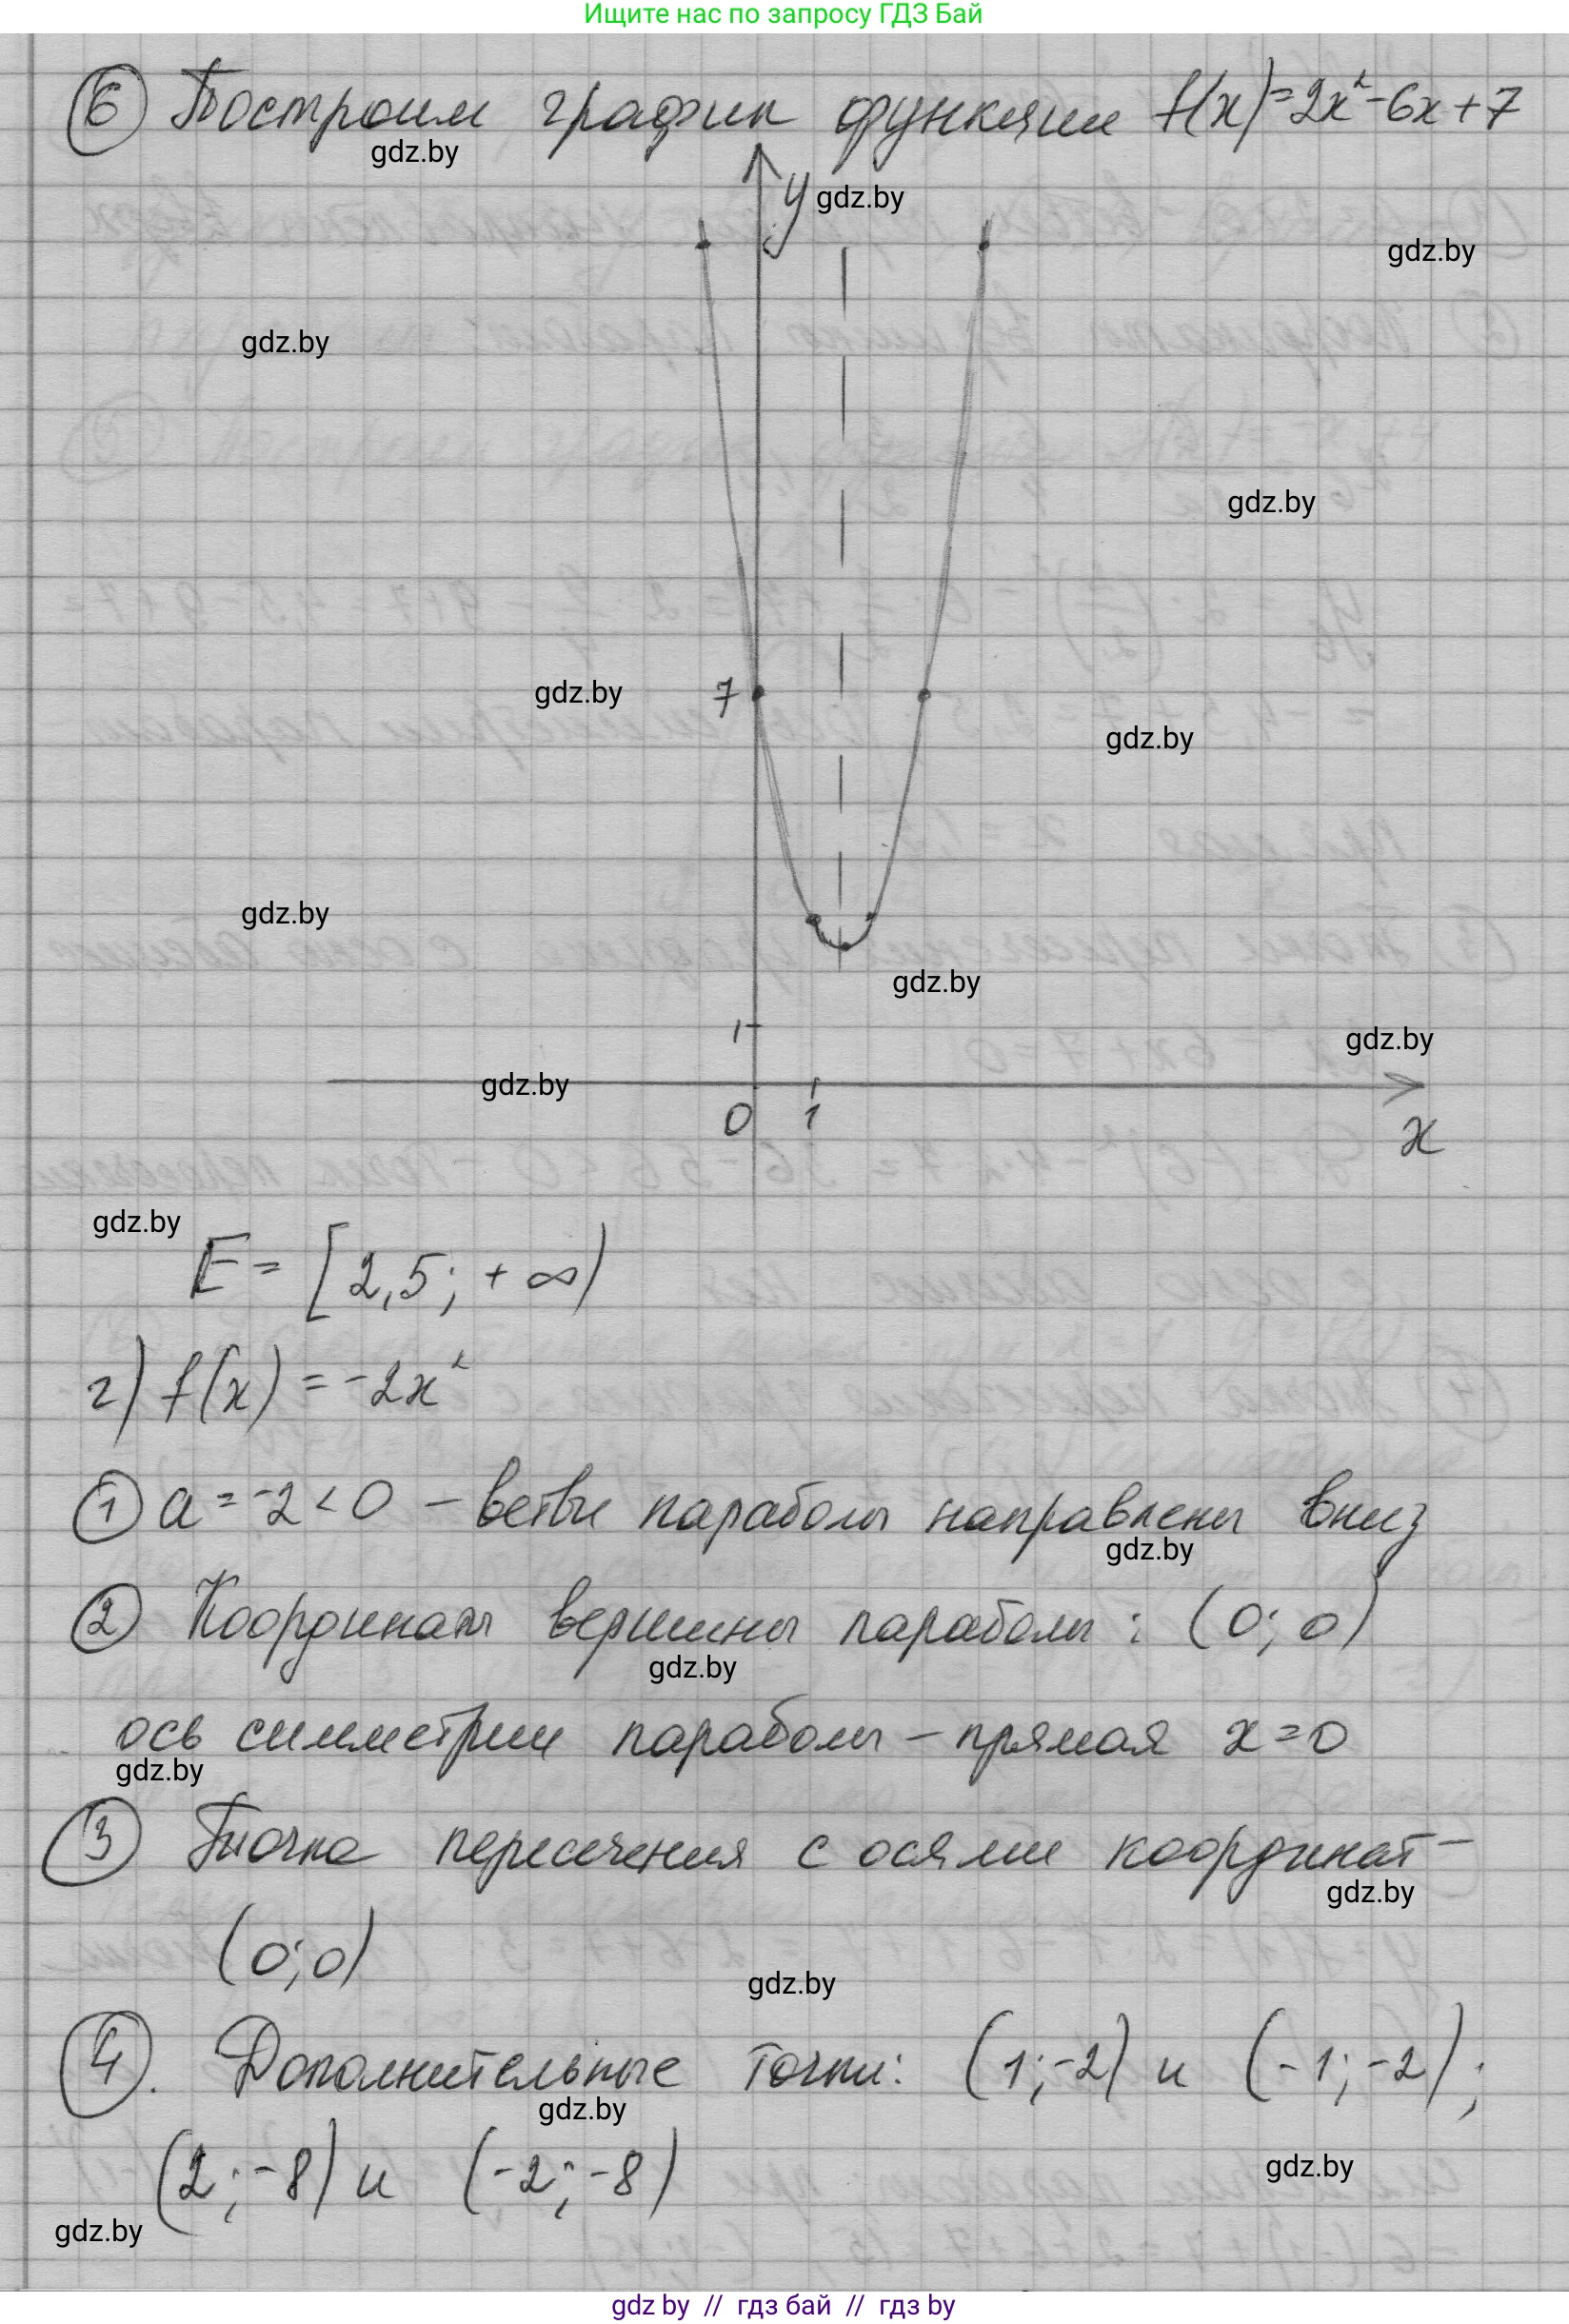 Ищите нас по запросу ГДЗ Бай
⑥ Построим график функции f(x)=2x²-6x+7
gdz.by
y gdz.by
gdz.by
gdz.by
gdz.by
gdz.by 7
gdz.by
gdz.by
gdz.by
1
gdz.by
gdz.by
0 1
x
gdz.by
E = [2,5; +∞)
г) f(x) = -2x²
① a = -2 < 0 – ветви параболы направлены вниз
gdz.by
② Координаты вершины параболы: (0; 0)
gdz.by
ось симметрии параболы – прямая x=0
gdz.by
③ Точка пересечения с осями координат –
gdz.by
(0; 0)
gdz.by
④. Дополнительные точки: (1; -2) и (-1; -2);
gdz.by
(2; -8) и (-2; -8)
gdz.by
gdz.by
gdz by // гдз бай // гдз by